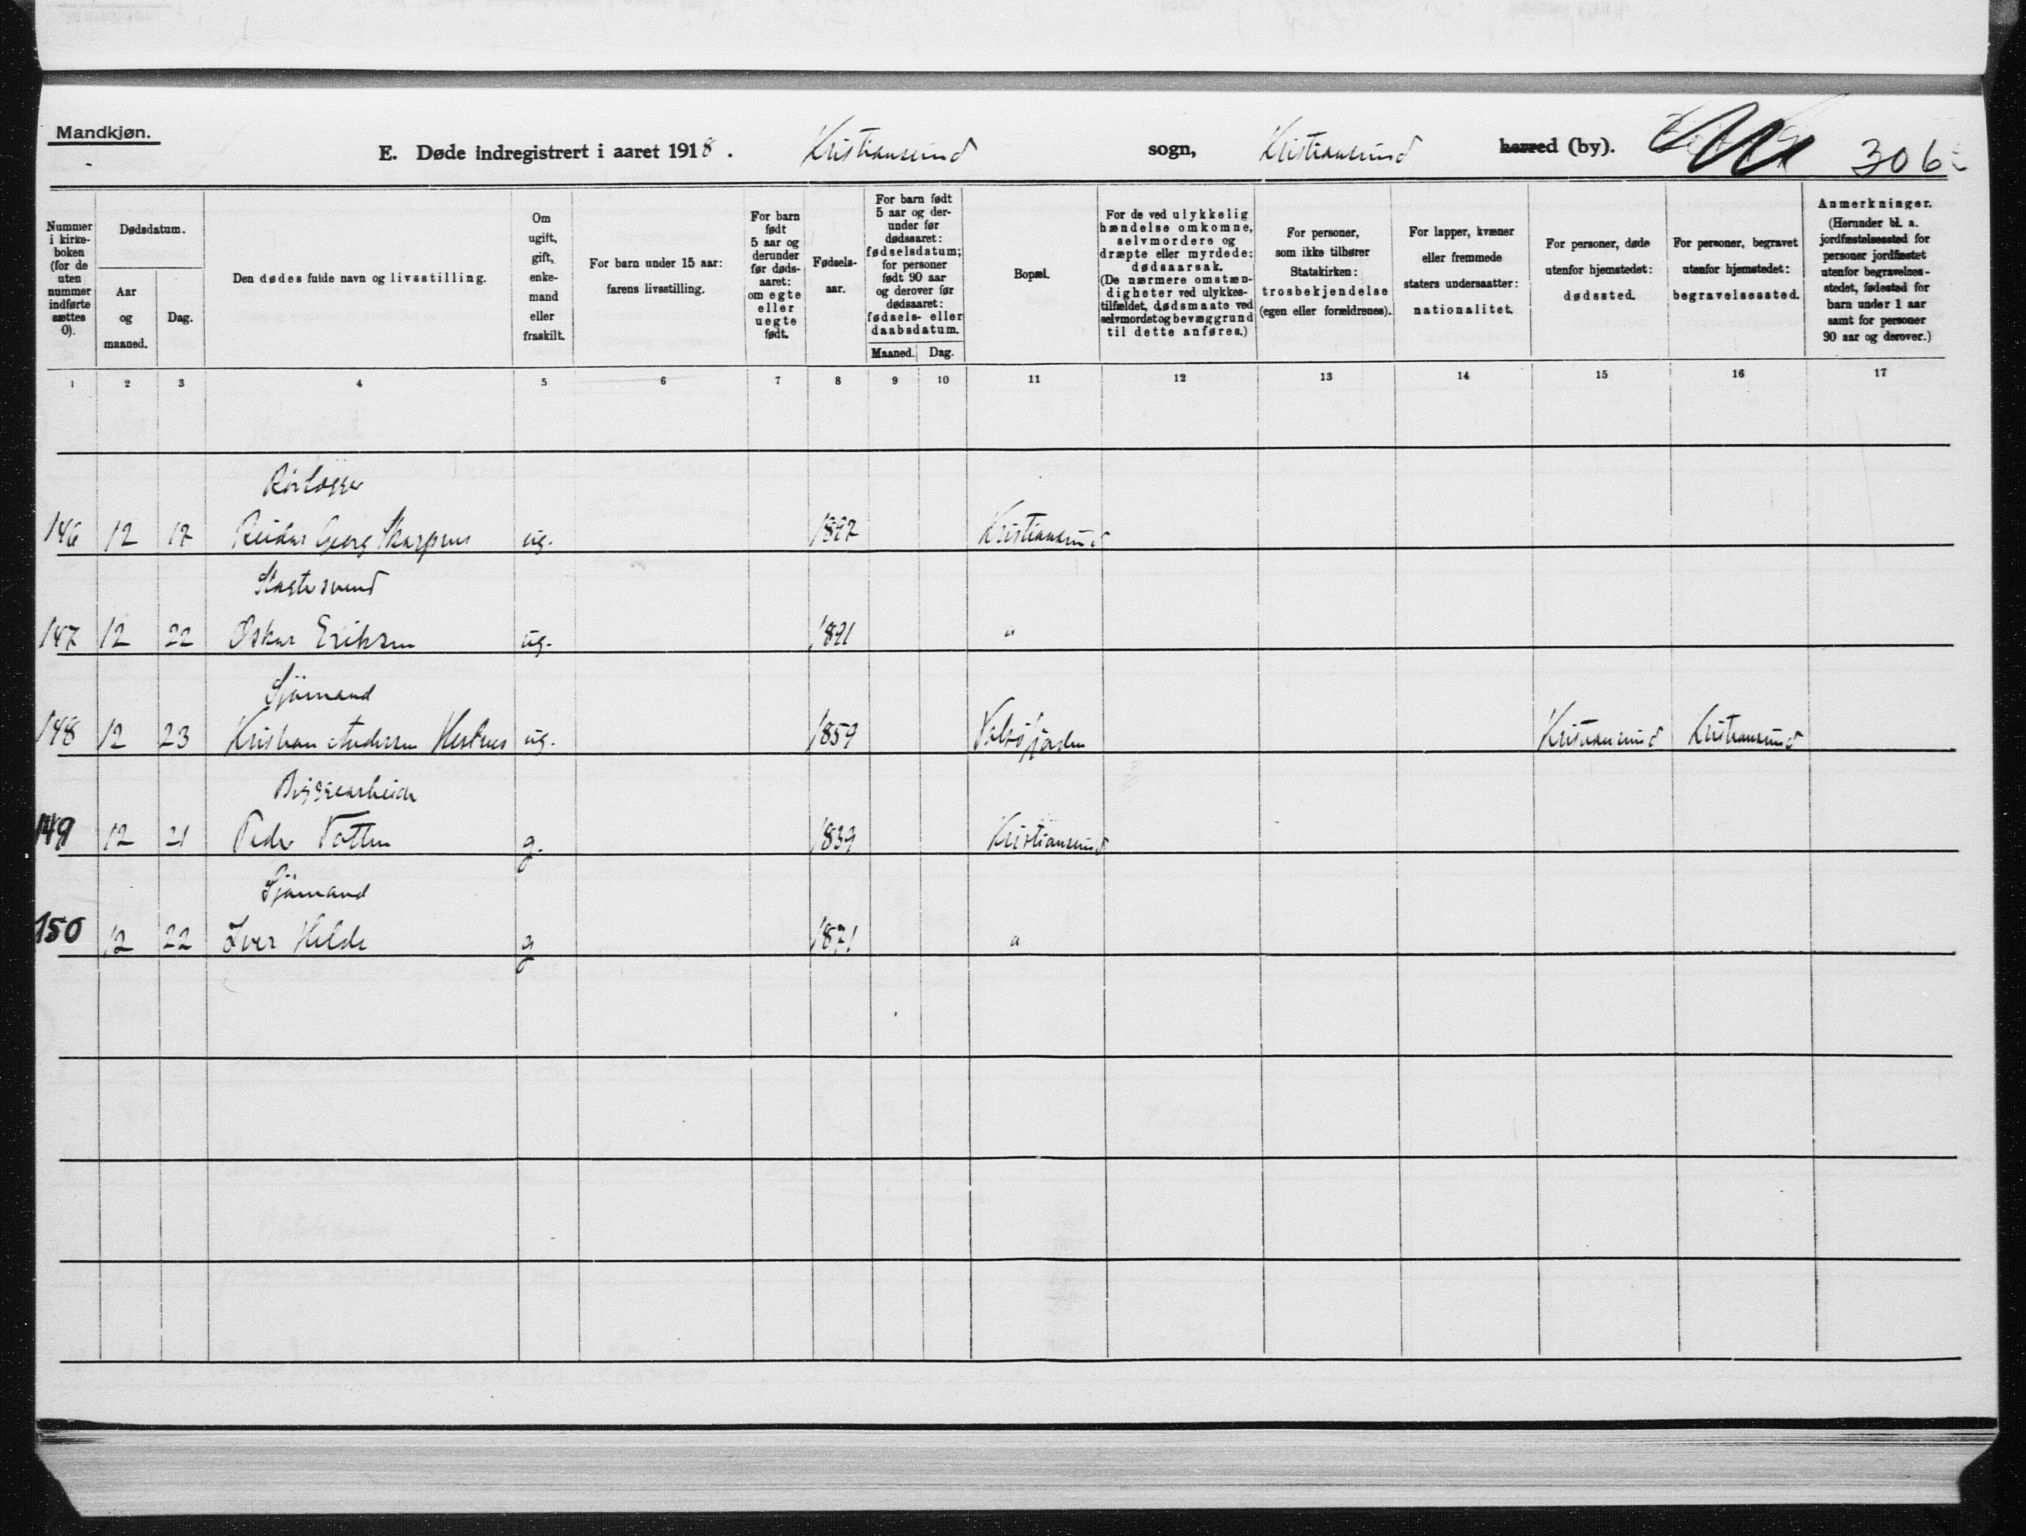 Mandkjøn.
E. Døde indregistrert i aaret 1918. Kristiansund sogn, Kristiansund herred (by). 306
Nummer i kirkeboken (for de uten nummer indførte sættes 0).
Dødsdatum.
Aar og maaned.
Dag.
Den dødes fulde navn og livsstilling.
Om ugift, gift, enkemand eller fraskilt.
For barn under 15 aar: farens livsstilling.
For barn født 5 aar og derunder før dødsaaret: om egte eller uegte født.
Fødselsaar.
For barn født 5 aar og derunder før dødsaaret: fødselsdatum; for personer født 90 aar og derover før dødsaaret: fødsels- eller daabsdatum.
Maaned. Dag.
Bopæl.
For de ved ulykkelig hændelse omkomne, selvmordere og dræpte eller myrdede: dødsaarsak. (De nærmere omstændigheter ved ulykkestilfældet, dødsmaate ved selvmordet og bevæggrund til dette anføres.)
For personer, som ikke tilhører Statskirken: trosbekjendelse (egen eller forældrenes).
For lapper, kvæner eller fremmede staters undersaatter: nationalitet.
For personer, døde utenfor hjemstedet: dødssted.
For personer, begravet utenfor hjemstedet: begravelsessted.
Anmerkninger. (Herunder bl. a. jordfæstelsessted for personer jordfæstet utenfor begravelsesstedet, fødested for barn under 1 aar samt for personer 90 aar og derover.)
1 2 3 4 5 6 7 8 9 10 11 12 13 14 15 16 17
Rørlægger
146 12 17 Reidar Georg Skarpnes ug. 1897 Kristiansund
Slagtersvend
147 12 22 Oskar Eriksen ug. 1891 "
Sjömand
148 12 23 Kristian Andersen Hestnes ug. 1859 Valsøfjorden Kristiansund Kristiansund
Bryggearbeider
149 12 21 Peder Vatten g. 1839 Kristiansund
Sjömand
150 12 22 Iver Helde g 1871 "